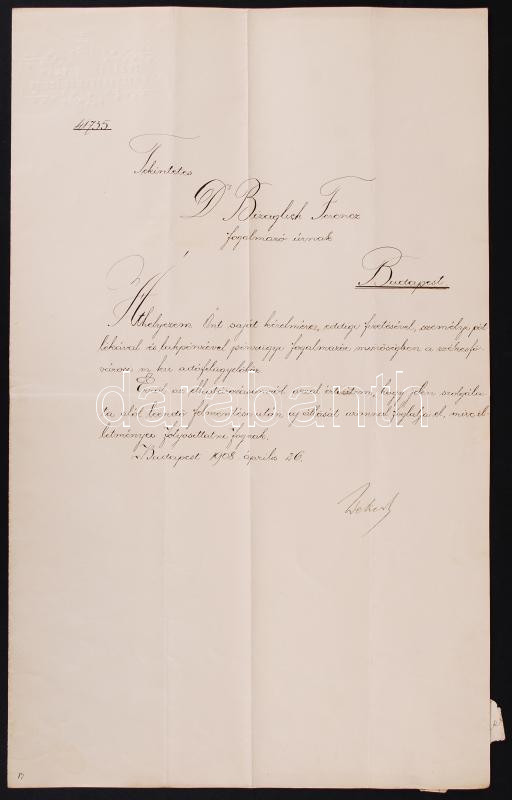 41735
Tekintetes
Dr Bezeglich Ferencz
fogalmazó úrnak
Budapest
Áthelyezem Önt saját kérelmére, eddigi fizetésével, személyi pót
lékával és lakpénzével pénzügyi fogalmazói minőségben a székesfő
városi m. kir. adófelügyelőhöz.
Erről azzal értesítem, hogy jelen szolgála
ta alól leendő felmentése után új állását azonnal foglalja el, mire il
letményei folyósíttatni fognak.
Budapest 1908 április 26.
Wekerle
darabanth